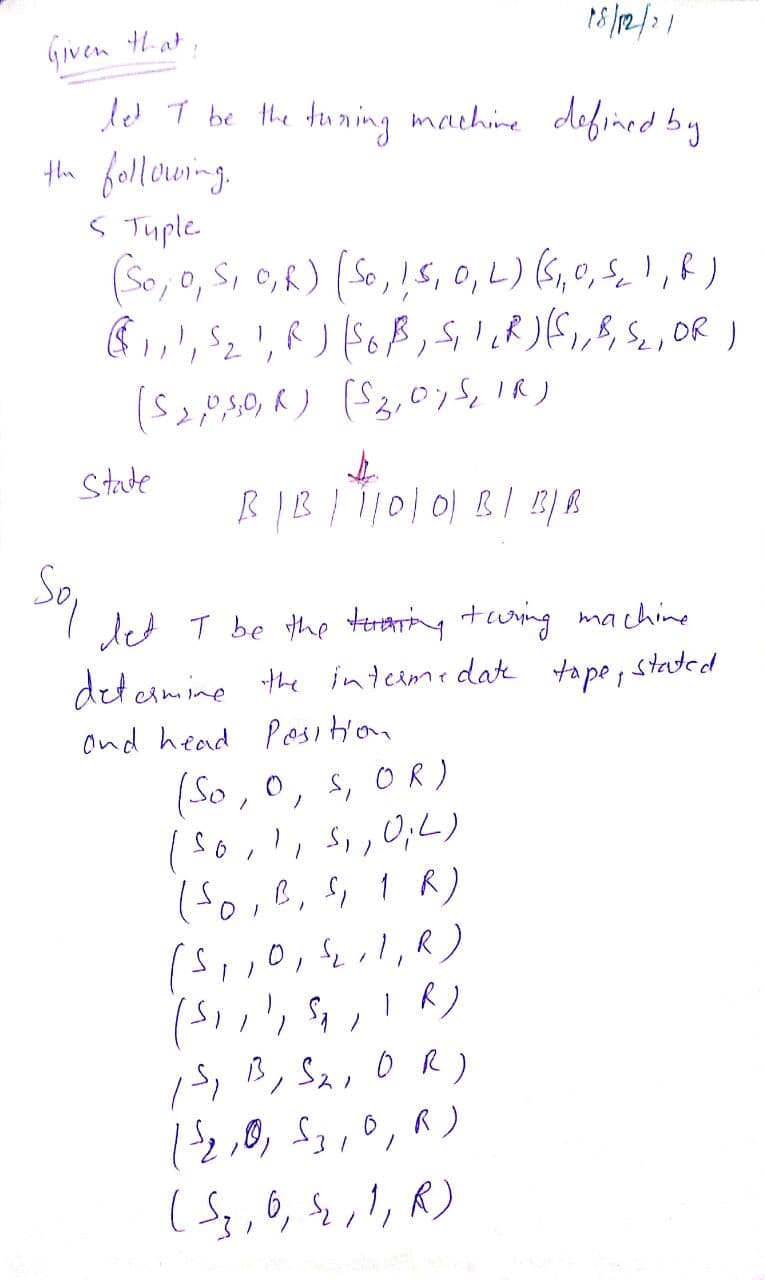 18/12/21
Given that,
let T be the turing machine defined by
the following.
5 Tuple
(S0, 0, S1 0, R) (S0, 1, S1, 0, L) (S1, 0, S2 1, R)
(S1, 1, S2 1, R) (S0 B, S1 1, R) (S1, B, S2, OR)
(S2, 0, S3 0, R) (S3, 0, S2 1R)
State
B | B | 1 | 0 | 0 | B | B | B
So,
let T be the turing machine
determine the intermedate tape, stated
and head Position
(S0, 0, S1 0 R)
(S0, 1, S1, 0, L)
(S0, B, S1 1 R)
(S1, 0, S2, 1, R)
(S1, 1, S1, 1 R)
(S1 B, S2, 0 R)
(S2, 0, S3, 0, R)
(S3, 0, S2, 1, R)